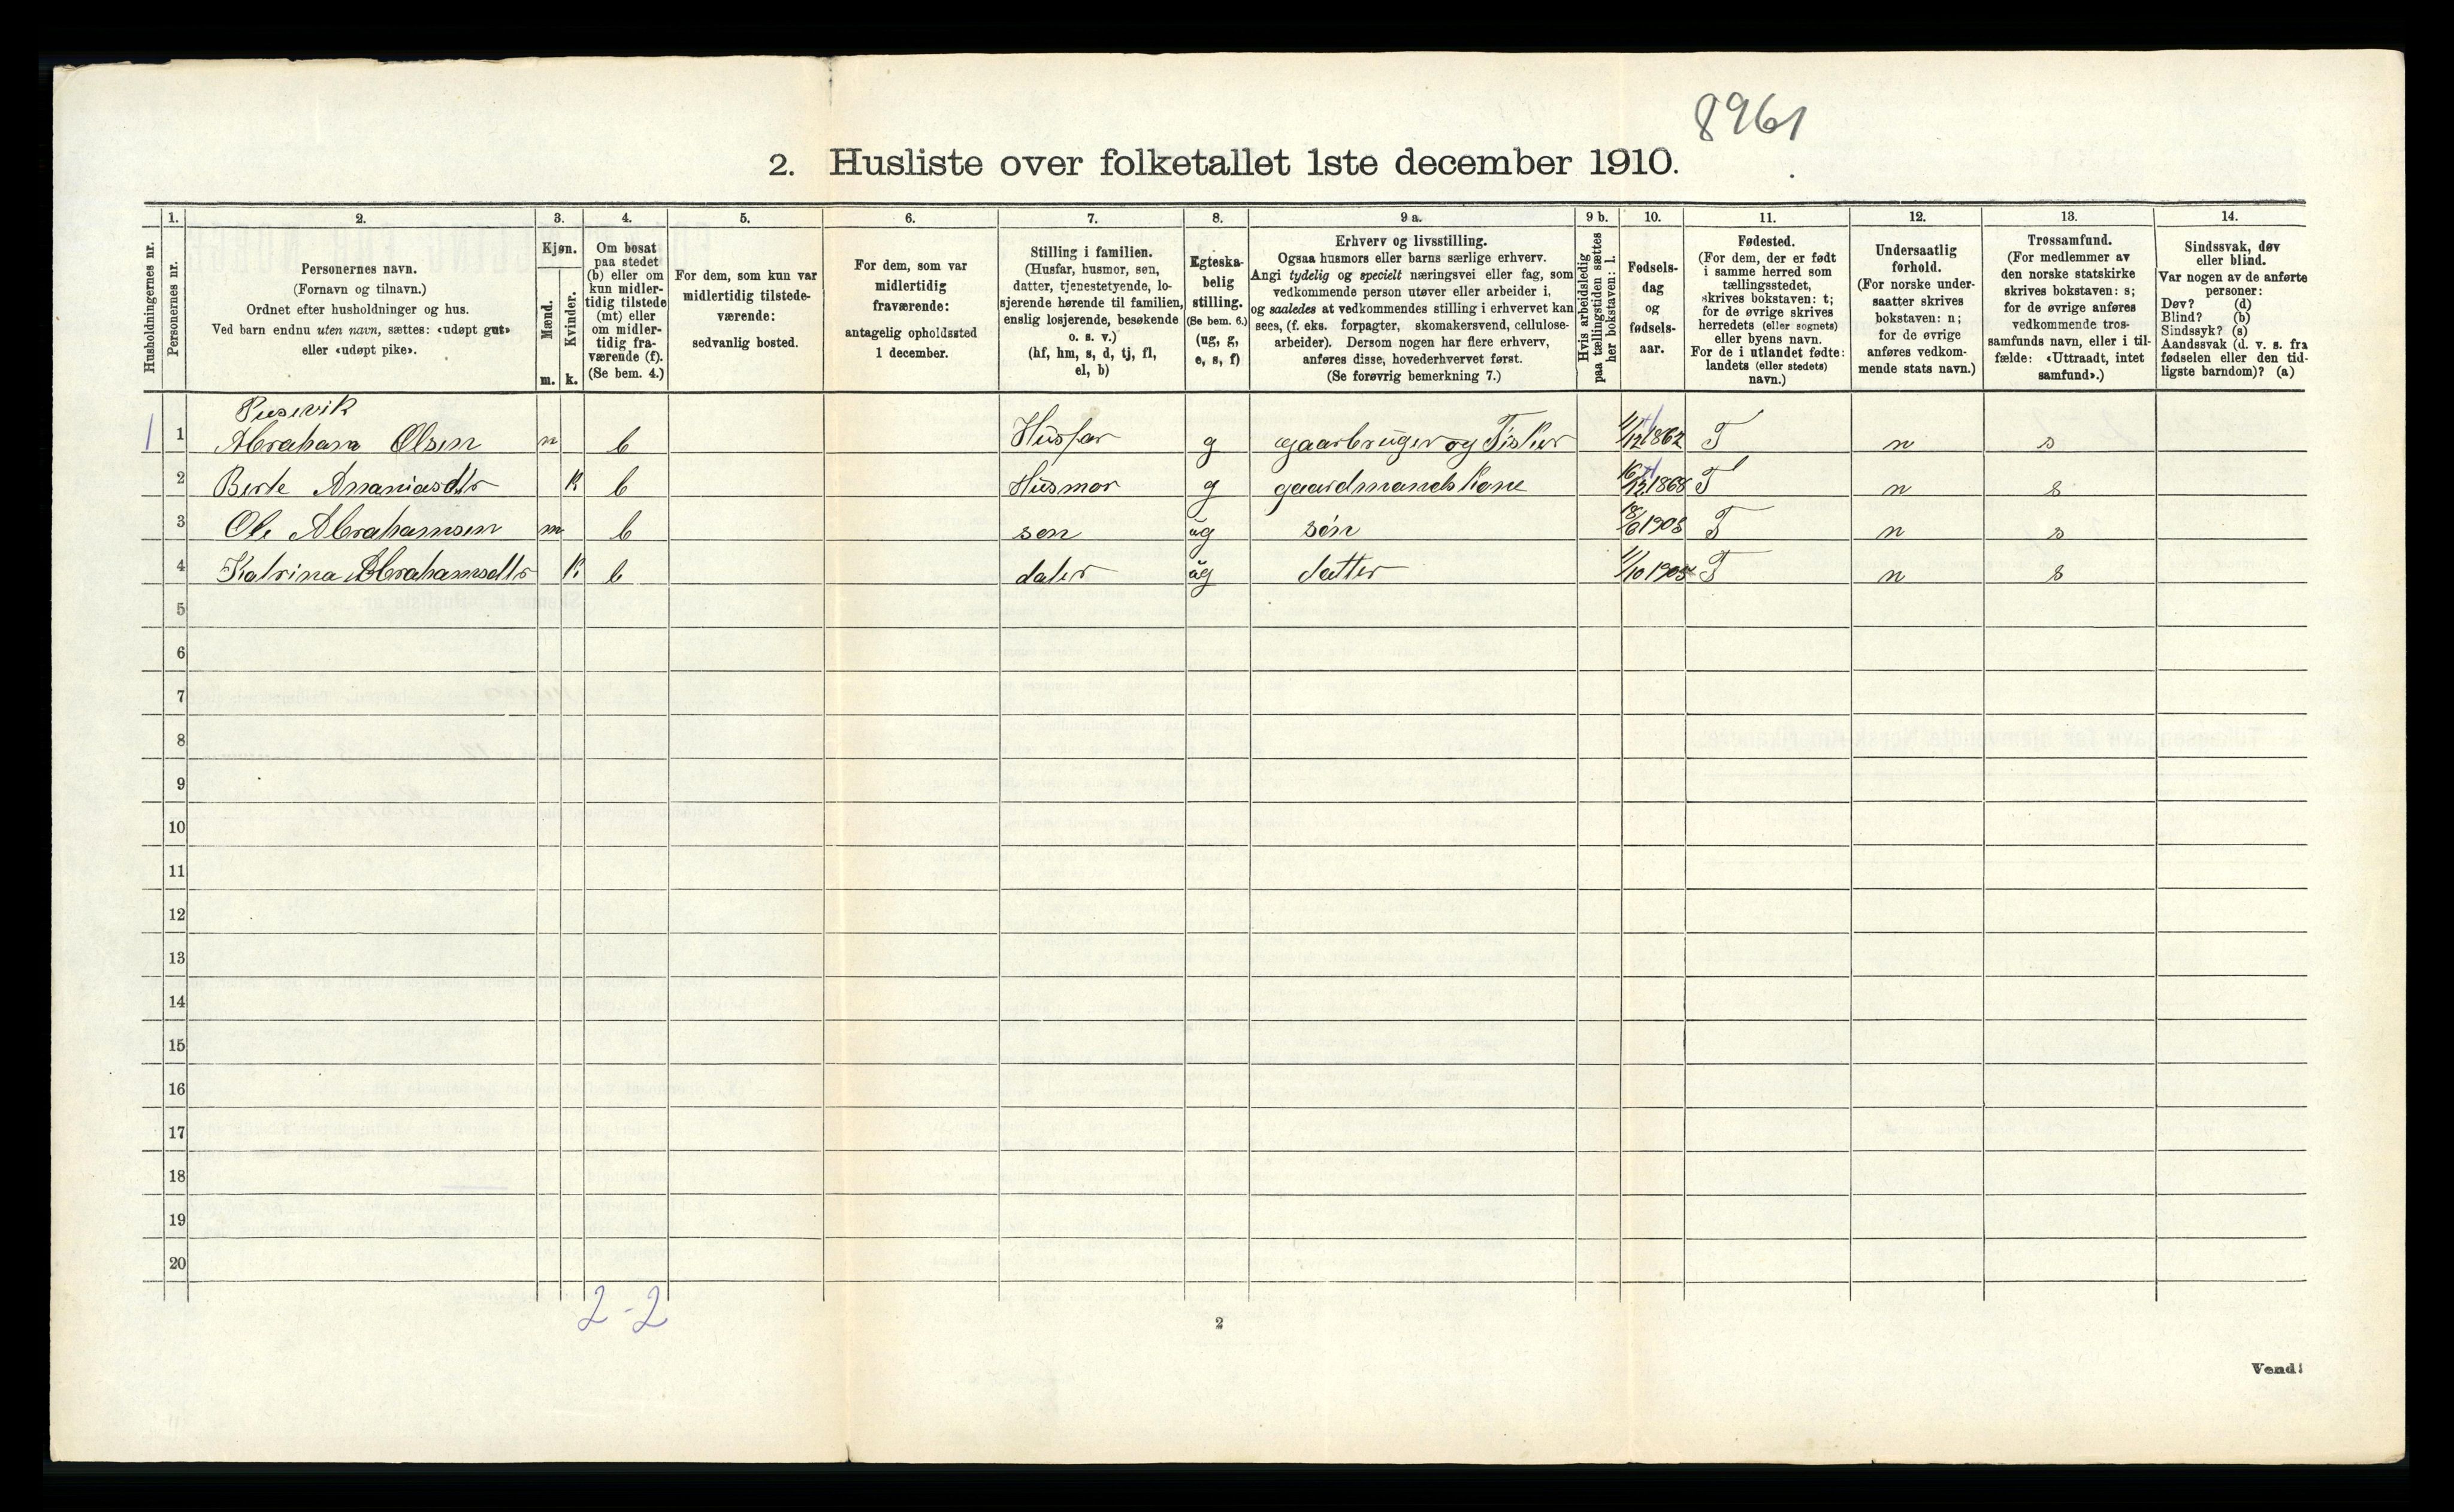 8961
2. Husliste over folketallet 1ste december 1910.
Husholdningernes nr.
1.
Personernes nr.
2.
Personernes navn.
(Fornavn og tilnavn.)
Ordnet efter husholdninger og hus.
Ved barn endnu uten navn, sættes: «udøpt gut»
eller «udøpt pike».
3.
Kjøn.
Mænd.
m.
Kvinder.
k.
4.
Om bosat
paa stedet
(b) eller om
kun midler-
tidig tilstede
(mt) eller
om midler-
tidig fra-
værende (f).
(Se bem. 4.)
5.
For dem, som kun var
midlertidig tilstede-
værende:
sedvanlig bosted.
6.
For dem, som var
midlertidig
fraværende:
antagelig opholdssted
1 december.
7.
Stilling i familien.
(Husfar, husmor, søn,
datter, tjenestetyende, lo-
sjerende hørende til familien,
enslig losjerende, besøkende
o. s. v.)
(hf, hm, s, d, tj, fl,
el, b)
8.
Egteska-
belig
stilling.
(Se bem. 6.)
(ug, g,
e, s, f)
9 a.
Erhverv og livsstilling.
Ogsaa husmors eller barns særlige erhverv.
Angi tydelig og specielt næringsvei eller fag, som
vedkommende person utøver eller arbeider i,
og saaledes at vedkommendes stilling i erhvervet kan
sees, (f. eks. forpagter, skomakersvend, cellulose-
arbeider). Dersom nogen har flere erhverv,
anføres disse, hovederhvervet først.
(Se forøvrig bemerkning 7.)
9 b.
Hvis arbeidsledig
paa tællingstiden sættes
her bokstaven: l.
10.
Fødsels-
dag
og
fødsels-
aar.
11.
Fødested.
(For dem, der er født
i samme herred som
tællingsstedet,
skrives bokstaven: t;
for de øvrige skrives
herredets (eller sognets)
eller byens navn.
For de i utlandet fødte:
landets (eller stedets)
navn.)
12.
Undersaatlig
forhold.
(For norske under-
saatter skrives
bokstaven: n;
for de øvrige
anføres vedkom-
mende stats navn.)
13.
Trossamfund.
(For medlemmer av
den norske statskirke
skrives bokstaven: s;
for de øvrige anføres
vedkommende tros-
samfunds navn, eller i til-
fælde: «Uttraadt, intet
samfund».)
14.
Sindssvak, døv
eller blind.
Var nogen av de anførte
personer:
Døv? (d)
Blind? (b)
Sindssyk? (s)
Aandssvak (d. v. s. fra
fødselen eller den tid-
ligste barndom)? (a)
1 1 Abraham Olsen m b Husfar g gaarbruger og Fisker 1862 T n s
2 Berte Ananiasdtr K b Husmor g gaardmands Kone 16/12 1868 T n s
3 Ole Abrahamsen m b søn ug søn 18/6 1903 T n s
4 Katrina Abrahamsdtr K b dater ug datter 1/10 T n s
5
6
7
8
9
10
11
12
13
14
15
16
17
18
19
20
2-2
2
Vend!